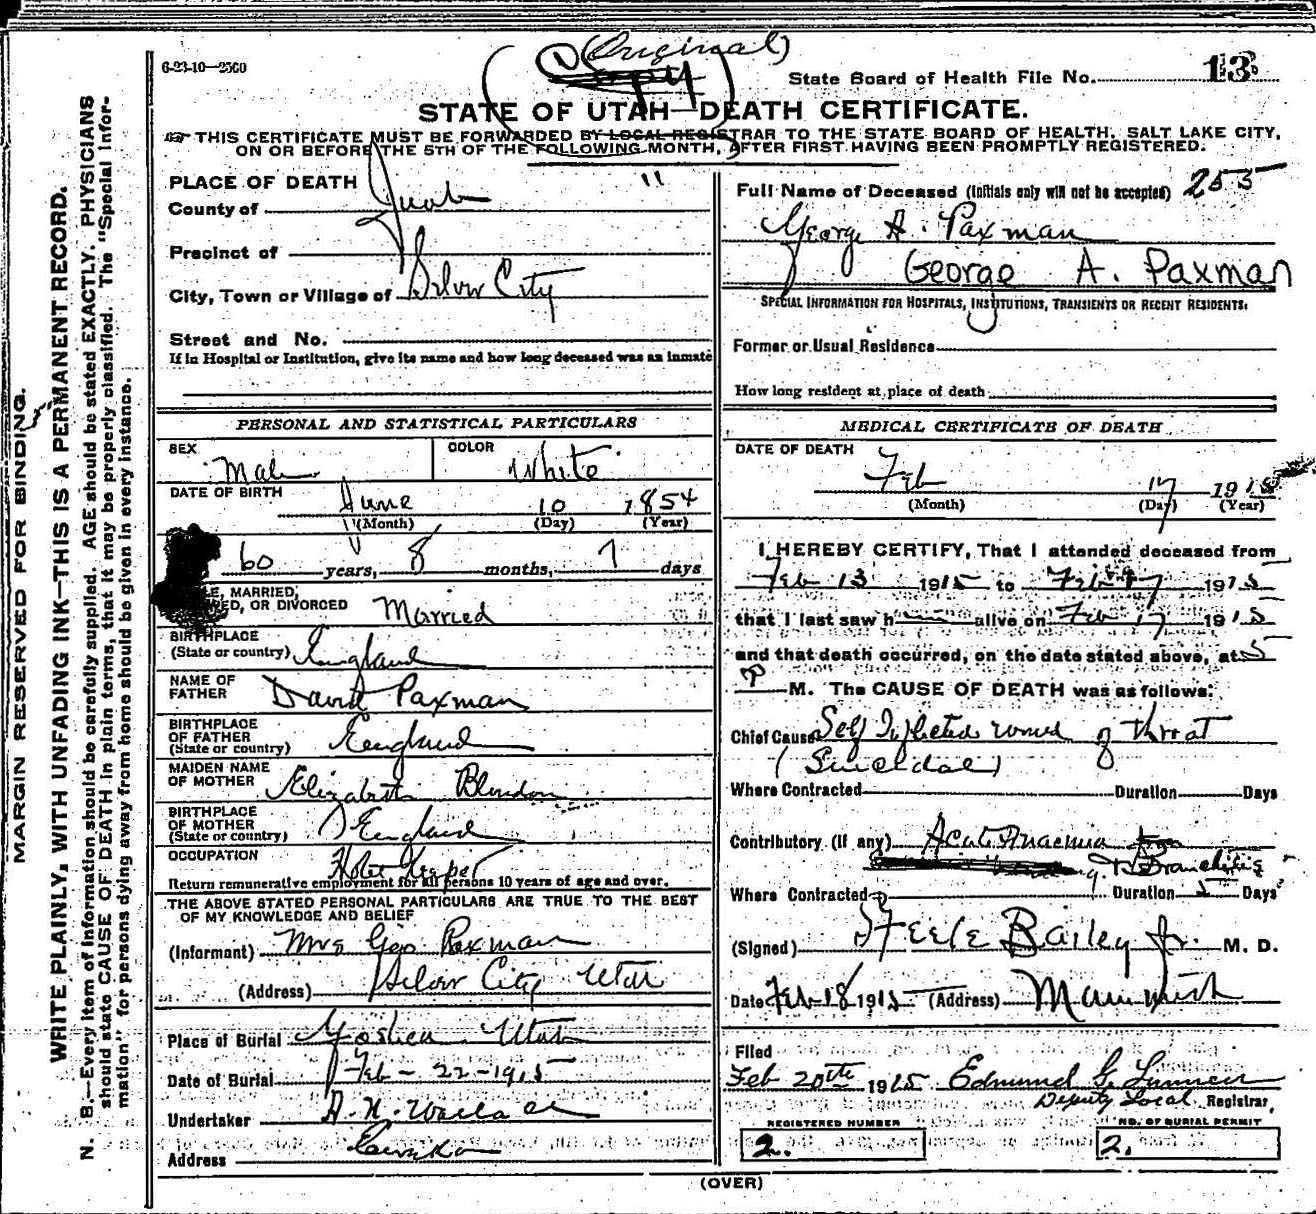 (Original)
1
Copy
6-23-10—2500
State Board of Health File No. 13
STATE OF UTAH—DEATH CERTIFICATE.
THIS CERTIFICATE MUST BE FORWARDED BY LOCAL REGISTRAR TO THE STATE BOARD OF HEALTH, SALT LAKE CITY,
ON OR BEFORE THE 5TH OF THE FOLLOWING MONTH, AFTER FIRST HAVING BEEN PROMPTLY REGISTERED.
MARGIN RESERVED FOR BINDING.
WRITE PLAINLY, WITH UNFADING INK—THIS IS A PERMANENT RECORD.
N. B.—Every item of information should be carefully supplied. AGE should be stated EXACTLY. PHYSICIANS
should state CAUSE OF DEATH in plain terms, that it may be properly classified. The "Special Infor-
mation" for persons dying away from home should be given in every instance.
PLACE OF DEATH "
County of Juab
Precinct of
City, Town or Village of Silver City
Street and No.
If in Hospital or Institution, give its name and how long deceased was an inmate
PERSONAL AND STATISTICAL PARTICULARS
SEX Male COLOR White
DATE OF BIRTH June 10 1854
(Month) (Day) (Year)
60 years, 8 months, 7 days
MARRIED,
OR DIVORCED Married
BIRTHPLACE
(State or country) England
NAME OF
FATHER David Paxman
BIRTHPLACE
OF FATHER
(State or country) England
MAIDEN NAME
OF MOTHER Elizabeth
BIRTHPLACE
OF MOTHER
(State or country) England
OCCUPATION Hotel Keeper
Return remunerative employment for all persons 10 years of age and over.
THE ABOVE STATED PERSONAL PARTICULARS ARE TRUE TO THE BEST
OF MY KNOWLEDGE AND BELIEF
(Informant) Mrs Geo Paxman
(Address) Silver City Utah
Place of Burial Goshen Utah
Date of Burial Feb - 22 - 1915
Undertaker A. N. Wallace
Address Eureka
Full Name of Deceased (Initials only will not be accepted) 255
George A. Paxman
George A. Paxman
SPECIAL INFORMATION FOR HOSPITALS, INSTITUTIONS, TRANSIENTS OR RECENT RESIDENTS:
Former or Usual Residence
How long resident at place of death
MEDICAL CERTIFICATE OF DEATH
DATE OF DEATH
Feb 17 1915
(Month) (Day) (Year)
I HEREBY CERTIFY, That I attended deceased from
Feb 13 1915 to Feb 17 1915
that I last saw h alive on Feb 17 1915
and that death occurred, on the date stated above, at 5
P M. The CAUSE OF DEATH was as follows:
Chief Cause Self Inflicted wound of throat
(Suicidal)
Where Contracted Duration Days
Contributory (if any) Acute Anaemia
Bronchitis
Where Contracted Duration Days
(Signed) Steele Bailey Jr. M. D.
Date Feb 18 1915 (Address) Mammoth
Filed
Feb 20th 1915 Edmund G.
Deputy Local Registrar,
REGISTERED NUMBER
2.
NO. OF BURIAL PERMIT
2.
(OVER)